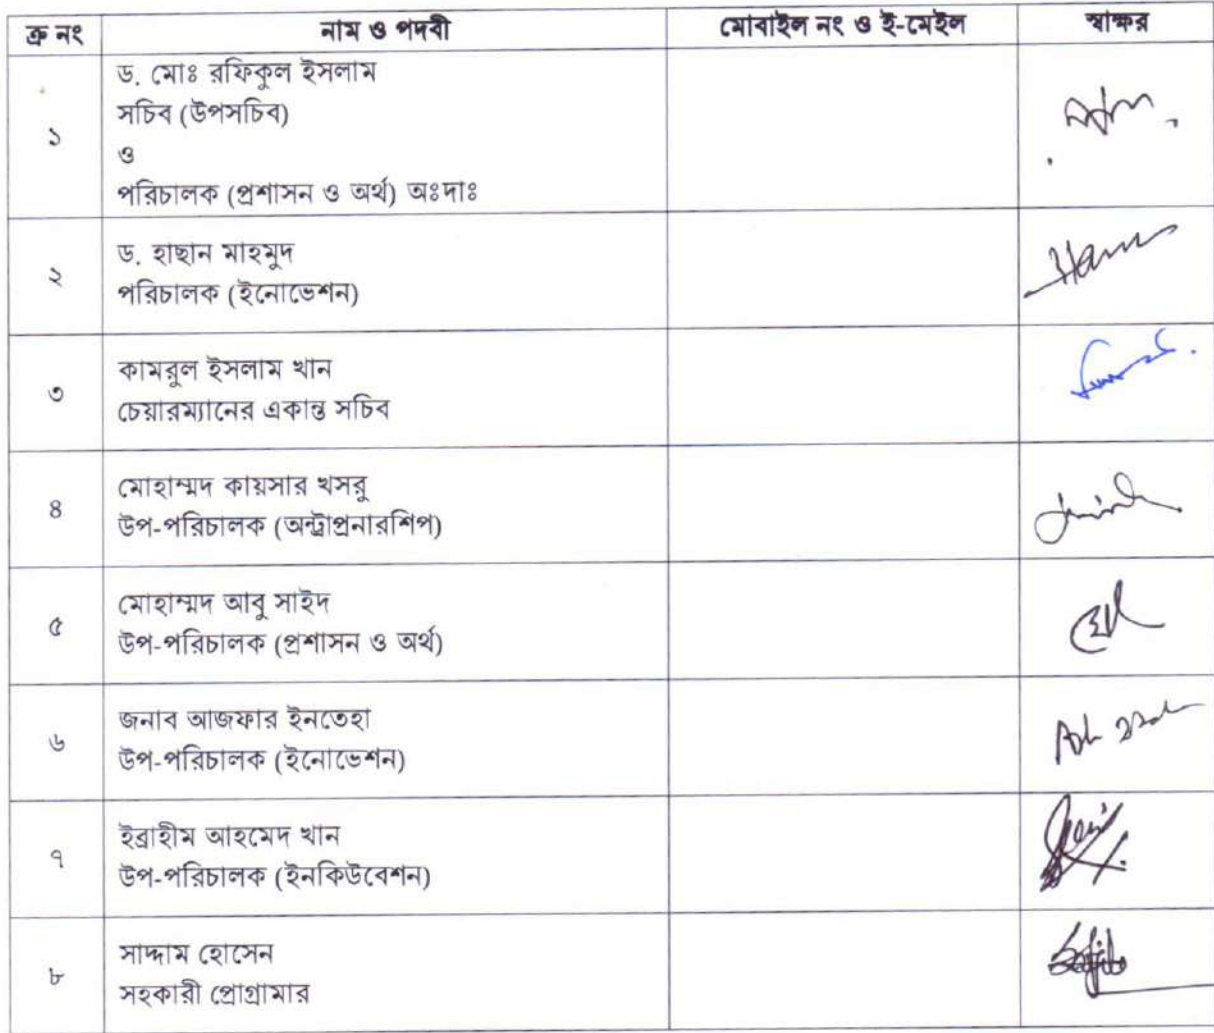 ক্র নং নাম ও পদবী মোবাইল নং ও ই-মেইল স্বাক্ষর
১
ড. মোঃ রফিকুল ইসলাম
সচিব (উপসচিব)
ও
পরিচালক (প্রশাসন ও অর্থ) অঃদাঃ
২
ড. হাছান মাহমুদ
পরিচালক (ইনোভেশন)
৩
কামরুল ইসলাম খান
চেয়ারম্যানের একান্ত সচিব
৪
মোহাম্মদ কায়সার খসরু
উপ-পরিচালক (অন্ট্রাপ্রনারশিপ)
৫
মোহাম্মদ আবু সাইদ
উপ-পরিচালক (প্রশাসন ও অর্থ)
৬
জনাব আজফার ইনতেহা
উপ-পরিচালক (ইনোভেশন)
৭
ইব্রাহীম আহমেদ খান
উপ-পরিচালক (ইনকিউবেশন)
৮
সাদ্দাম হোসেন
সহকারী প্রোগ্রামার